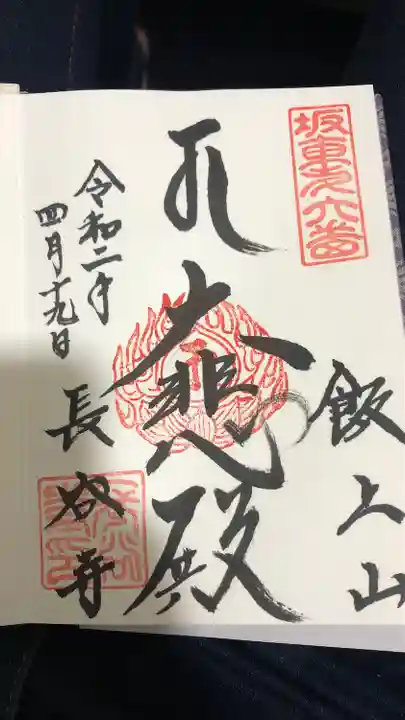 坂東第六番
飯上山
大悲殿
長谷寺
令和二年
四月十九日